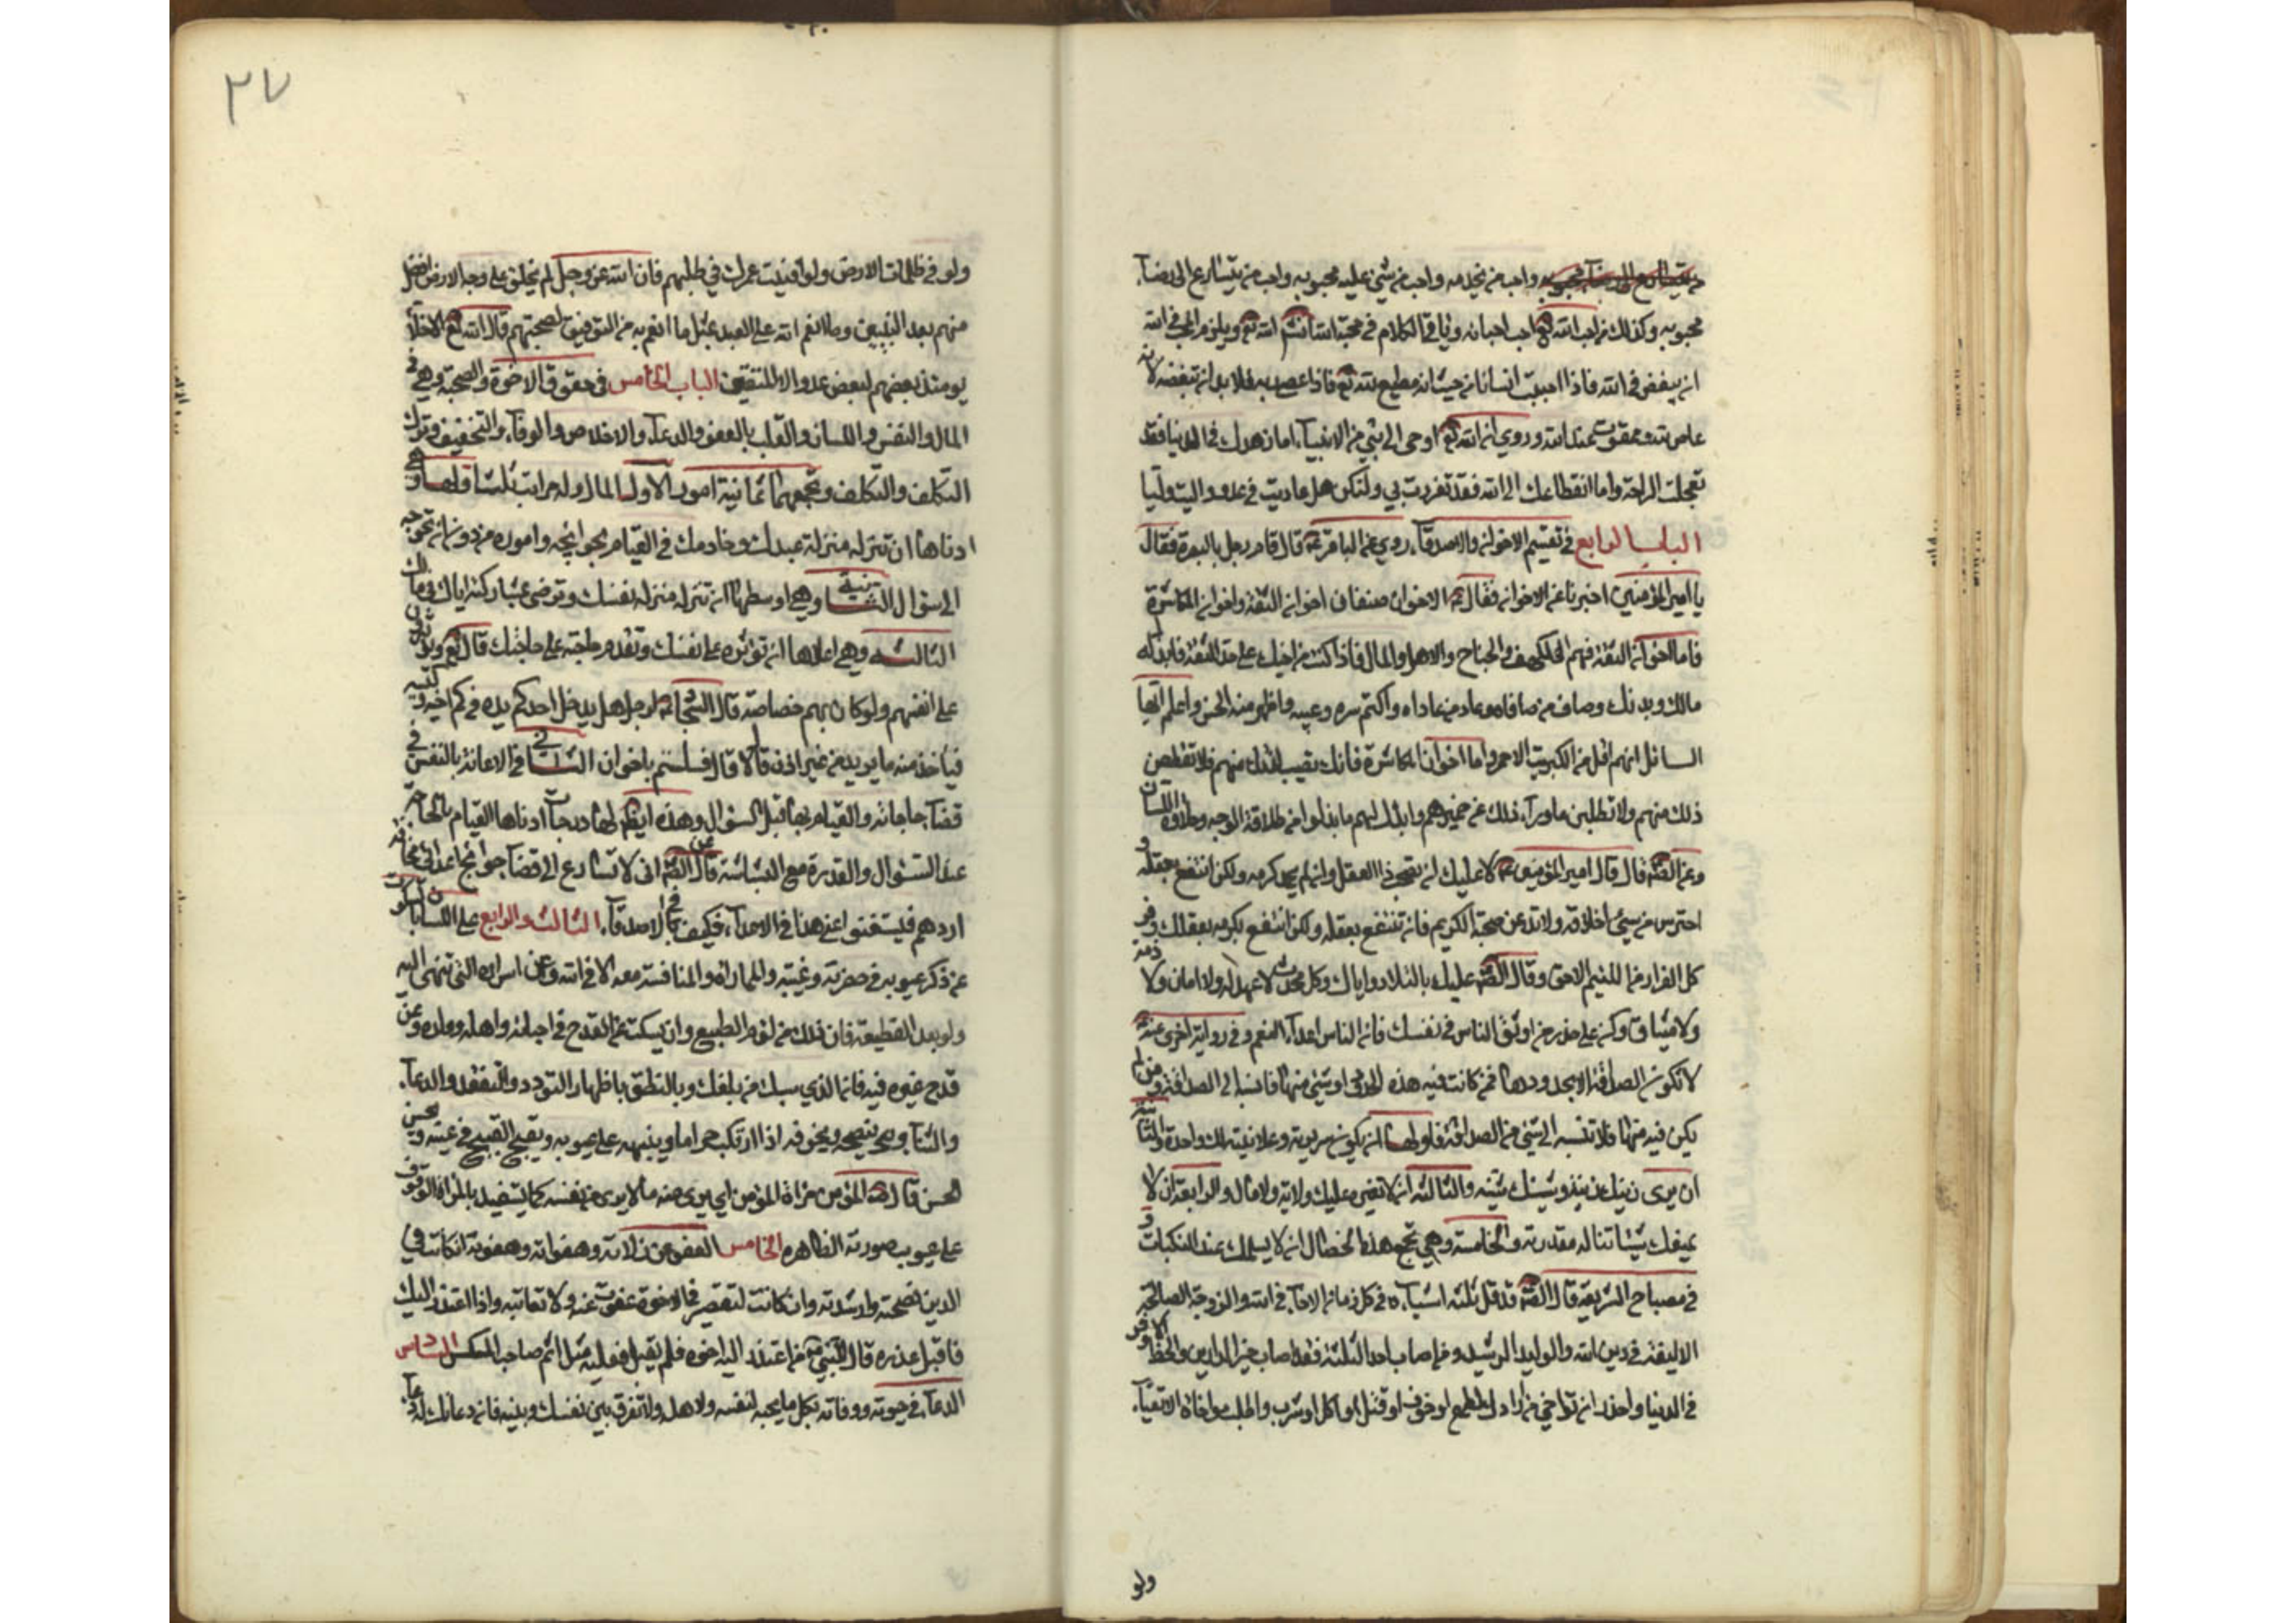 واحب من يخدمه واحب من يثني عليه محبوبه واحب من يتسارع الى رضآء
محبوبه وكذلك من احب الله تع احب احبائه وياتي الكلام في محبة الله انشآ الله تع ويلزم الحب في الله
ان يبغض في الله فاذا احببت انسانا من حيث انه مطيع لله تع فاذا عصى ربه فلا بد ان تبغضه لانه
عاص لله وممقوت عند الله وروي ان الله تع اوحى الى نبي من الانبيآء اما زهدك في الدنيا فقد
تعجلت الراحة واما انقطاعك الى الله فقد تعززت بي ولكن هل عاديت في عدوا واليت وليا
الباب الرابع في تقسيم الاخوان والاصدقآء روي عن الباقر ع قال قام رجل بالبصرة فقال
يا امير المؤمنين اخبرنا عن الاخوان فقال ع الاخوان صنفان اخوان الثقة واخوان المكاشرة
فاما اخوان الثقة فهم الكهف والجناح والاهل والمال فاذا كنت من اخيك على حد الثقة فابذل له
مالك وبدنك وصاف من صافاه وعاد من عاداه واكتم سره وعيبه واظهر منه الحسن واعلم ايها
السائل انهم اقل من الكبريت الاحمر واما اخوان المكاشرة فانك تصيب لذتك منهم فلا تقطعن
ذلك منهم ولا تطلبن ما ورآء ذلك من ضميرهم وابذل لهم ما بذلوا من طلاقة الوجه وحلاوة اللسان
وعن الصم قال قال امير المؤمنين ع لا عليك ان تصحب ذا العقل وان لم تحمد كرمه ولكن انتفع بعقله و
احترس من سيئ اخلاقه ولا تدعن صحبة الكريم فان لم تنتفع بعقله ولكن انتفع بكرمه بعقلك وفر
كل الفرار من اللئيم الاحمق وقال الصم عليك بالتلاد واياك وكل محدث لا عهد له ولا امان ولا ذمة
ولا ميثاق وكن على حذر من اوثق الناس في نفسك فان الناس اعدآء النعم وفي رواية اخرى عنه ع
لا تكون الصداقة الا بحدودها فمن كانت فيه هذه الحدود او شئ منها فانسبه الى الصداقة ومن لم
يكن فيه منها فلا تنسبه الى شئ من الصداقة فاولها ان يكون سريرته وعلانيته لك واحدة والثانية
ان يرى زينك زينه وشينك شينه والثالثة ان لا تغيره عليك ولاية ولا مال والرابعة ان لا
يمنعك شيئا تناله مقدرته والخامسة وهي تجمع هذه الخصال ان لا يسلمك عند النكبات و
في مصباح الشريعة قال الصم قد قل ثلثة اشيآء في كل زمان الاخآء في الله والزوجة الصالحة
الاليفة في دين الله والوليد الرشيد ومن اصاب احد الثلثة فقد اصاب خير الدارين والحظ الاوفر
في الدنيا واحذر ان تواخي من ارادك لطمع او خوف او فشل او اكل او شرب واطلب مواخاة الاتقيآء
ولو
٣٧
ولو في ظلمات الارض ولو افنيت عمرك في طلبهم فان الله عز وجل لم يخلق على وجه الارض افضل
منهم بعد النبيين وما انعم الله على العبد بمثل ما انعم به من التوفيق لصحبتهم قال الله تع الاخلآء
يومئذ بعضهم لبعض عدو الا المتقين الباب الخامس في حقوق الاخوة والصحبة وهي في
المال والنفس واللسان والقلب بالعفو والدعآء والاخلاص والوفآء والتخفيف وترك
التكلف والتكليف وتجمعها ثمانية امور الاول المال وله مراتب ثلث اولها وهي
ادناها ان تنزله منزلة عبدك وخادمك في القيام بحوائجه واموره من دون ان تحوجه
الى سؤال الثانية وهي اوسطها ان تنزله منزلة نفسك وترضى بمشاركته اياك في مالك
الثالثة وهي اعلاها ان تؤثره على نفسك وتقدم حاجته على حاجتك قال تع ويؤثرون
على انفسهم ولو كان بهم خصاصة قال السجاد ع لرجل هل يدخل احدكم يده في كم اخيه وكيسه
فياخذ منه ما يريد من غير اذن قال لا قال فلستم باخوان الثاني في الاعانة بالنفس في
قضآء حاجاته والقيام بها قبل السؤال وهذه ايضا لها درجات ادناها القيام بالحاجة
عند السؤال والقدرة مع البشاشة قال الصم اني لاتسارع الى قضآء حوائج اعدائي مخافة ان
اردهم فيستغنوا عني هذا في الاعدآء فكيف في الاصدقآء الثالث والرابع على اللسان بالسكوت
عن ذكر عيوبه في حضرته وغيبته والمماراة والمنافسة معه الا في الله وعن اسراره التي تنهى اليه
ولو بعد القطيعة فان ذلك من لؤم الطبع وان يسكت عن القدح في احبائه واهله وولده وعن
قدح غيره فيه فانما الذي سبك من بلغك وبالنطق باظهار التودد والتفقد والدعآء
والثنآء وينصحه ويخوفه اذا ارتكب حراما وينبهه على عيوبه ويقبح القبيح في عينه ويحسن
الحسن قال ص المؤمن مرآة المؤمن اي يرى منه ما لا يرى من نفسه كما يستفيد بالمرآة الوقوف
على عيوب صورته الظاهره الخامس العفو عن زلاته وهفواته وهفوته ان كانت في
الدين نصحته وارشدته وان كانت لتقصير في الاخوة عفوت عنه ولا تعاتبه واذا اعتذر اليك
فاقبل عذره قال النبي ص من اعتذر اليه اخوه فلم يقبل فعليه مثل اثم صاحب المكس السادس
الدعآء في حيوته ووفاته بكل ما يحبه لنفسه ولاهله ولا تفرق بين نفسك وبينه فان دعائك له دعآء